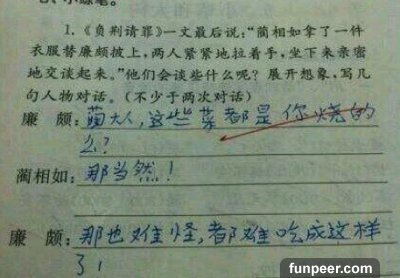 1.《负荆请罪》一文最后说:“蔺相如拿了一件
衣服替廉颇披上,两人紧紧地拉着手,坐下来亲密
地交谈起来。”他们会谈些什么呢?展开想象,写几
句人物对话。(不少于两次对话)
廉 颇:蔺大人,这些菜都是你烧的
么?
蔺相如:那当然!
廉 颇:那也难怪,都难吃成这样
了!
funpeer.com